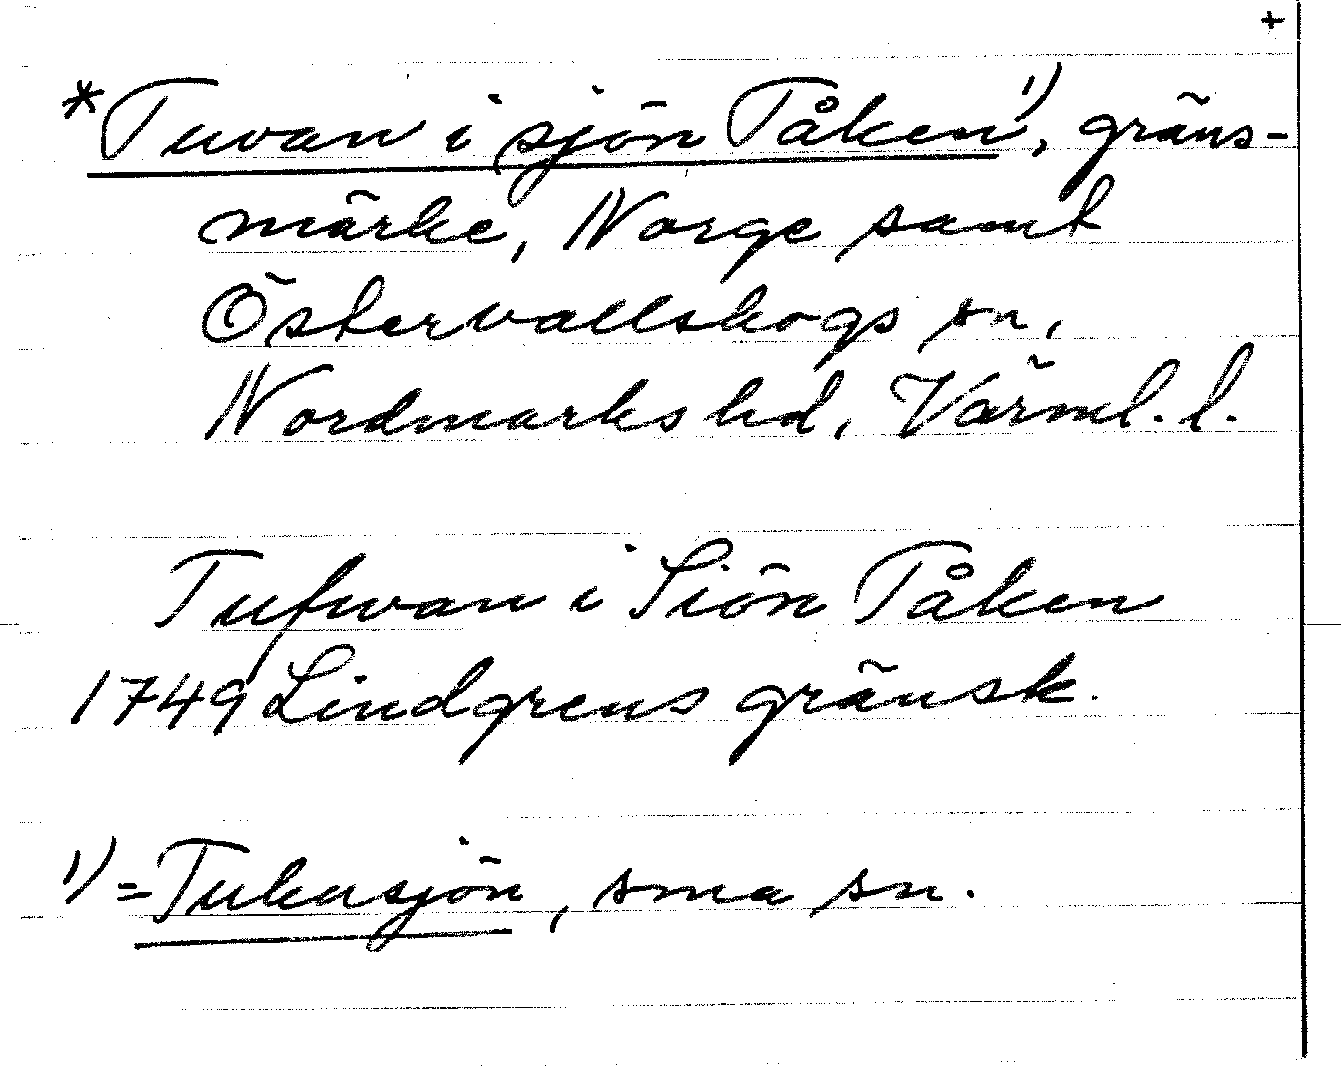 +
*Tuvan i sjön Tåken¹⁾, gräns-
märke, Norge samt
Östervallskogs sn,
Nordmarks hd, Värml. l.
Tufwan i Siön Tåken
1749 Lindgrens gränsk.
¹⁾ = Tukusjön, sma sn.